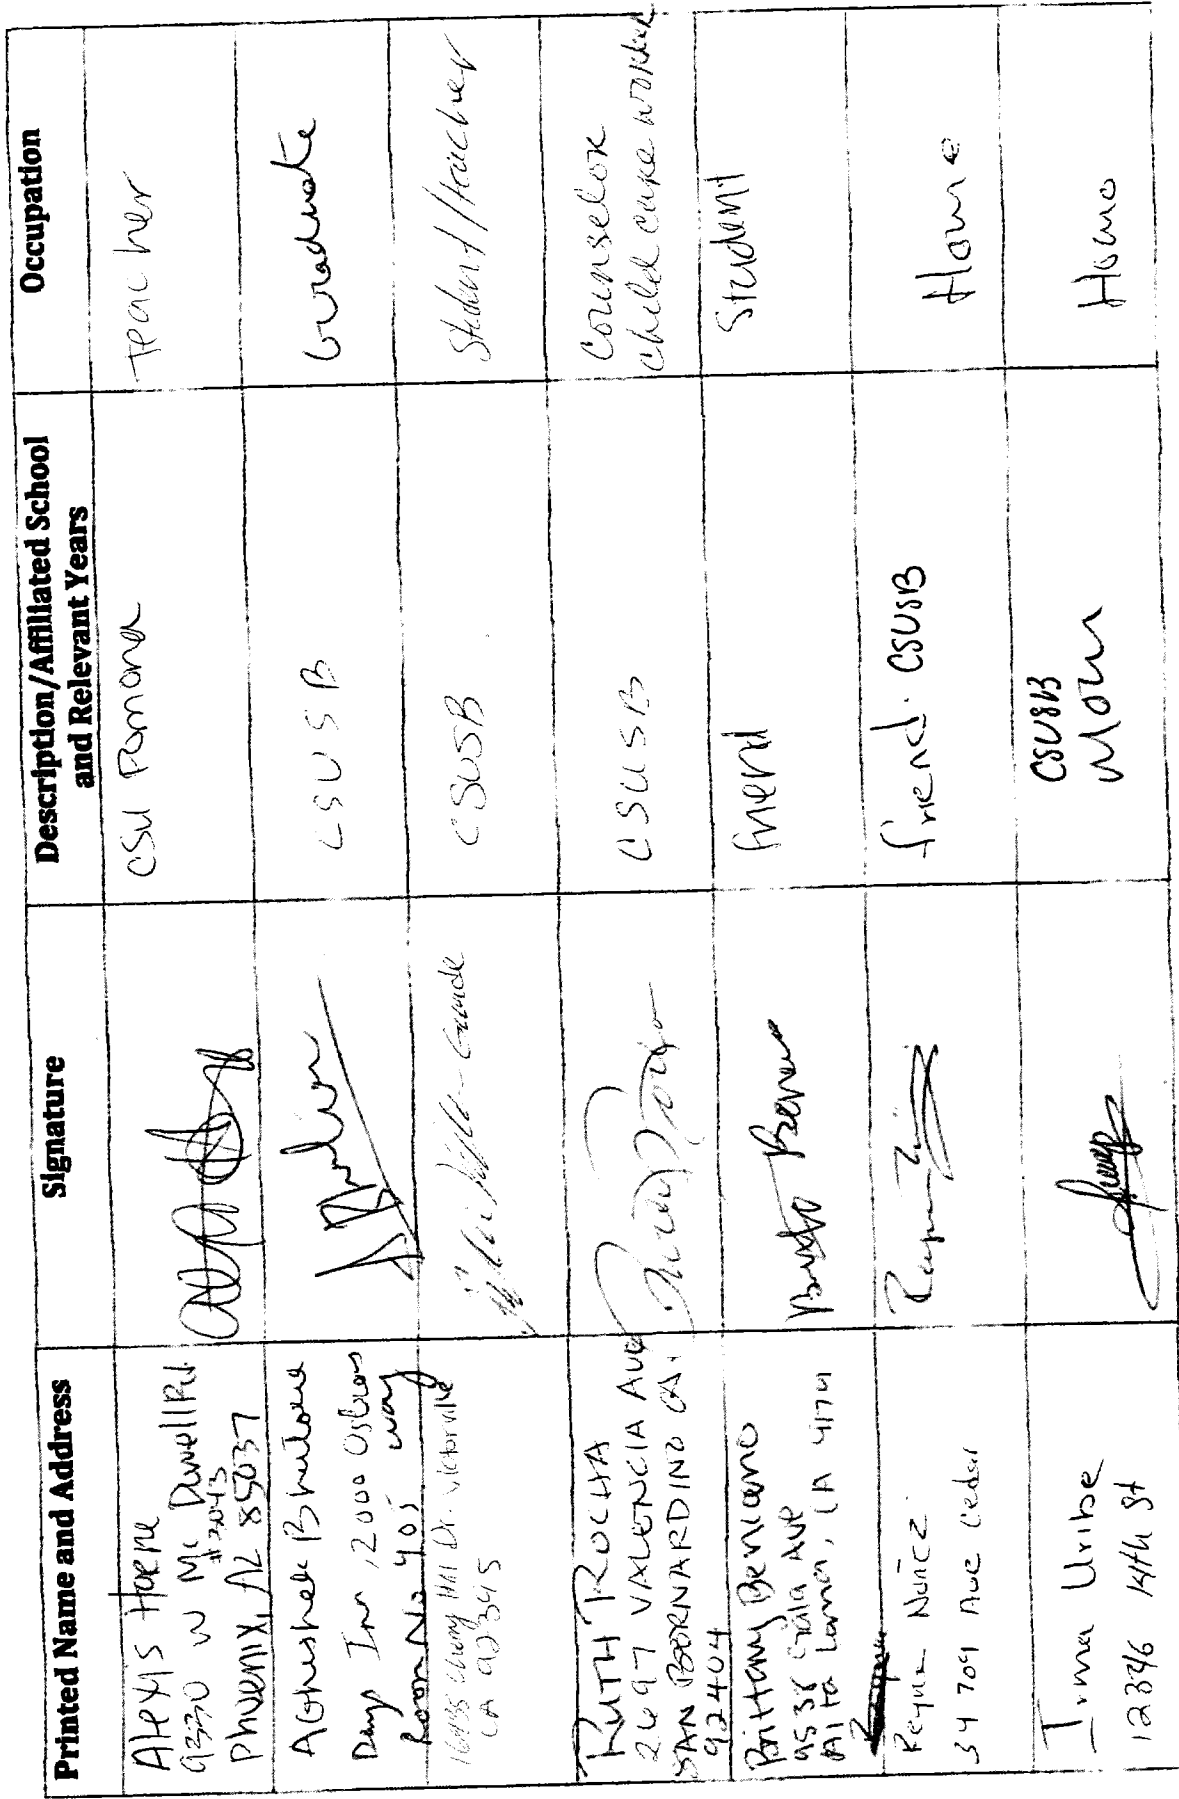 Printed Name and Address
Signature
Description/Affiliated School
and Relevant Years
Occupation
Alexis
9330 W Mc Dowell Rd.
#2043
Phoenix, AZ 85037
CSU Pomona
Teacher
Abhishek
Days Inn, 2000 Ostrems
way
Room No 405
CSUSB
Graduate
Dr. Victorville
CA 92395
CSUSB
Student/teacher
RUTH ROCHA
2697 VALENCIA AVE
SAN BERNARDINO CA.
92404
CSUSB
Counselor
Child care worker
Brittany Beniamo
Ave
Alta Loma, CA
friend
Student
Reyna Nuñez
34 709 Ave Cedar
friend. CSUSB
Home
Irma Uribe
12346 14th St
CSUSB
Mom
Home